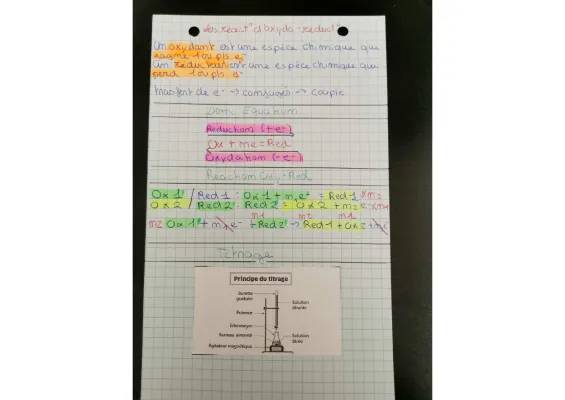 Les réact° d'oxydo-réduct°
Un oxydant est une espèce chimique qui
gagne 1 ou pls e-
Un réducteur est une espèce chimique qui
perd 1 ou pls e-
transfert de e- → conjugués → couple
Demi Equation
Réduction (+e-)
Ox + ne- = Red
Oxydation (-e-)
Réaction Oxy-Red
Ox 1 / Red 1 : Ox 1 + n1e- = Red 1 xn2
Ox 2 / Red 2 : Red 2 = Ox 2 + n2e- xn1
n2 Ox 1 + n1e- + n1 Red 2 → n2 Red 1 + n1 Ox 2 + ne-
Titrage
Principe du titrage
Burette graduée
Solution titrante
Potence
Erlenmeyer
Barreau aimanté
Solution titrée
Agitateur magnétique